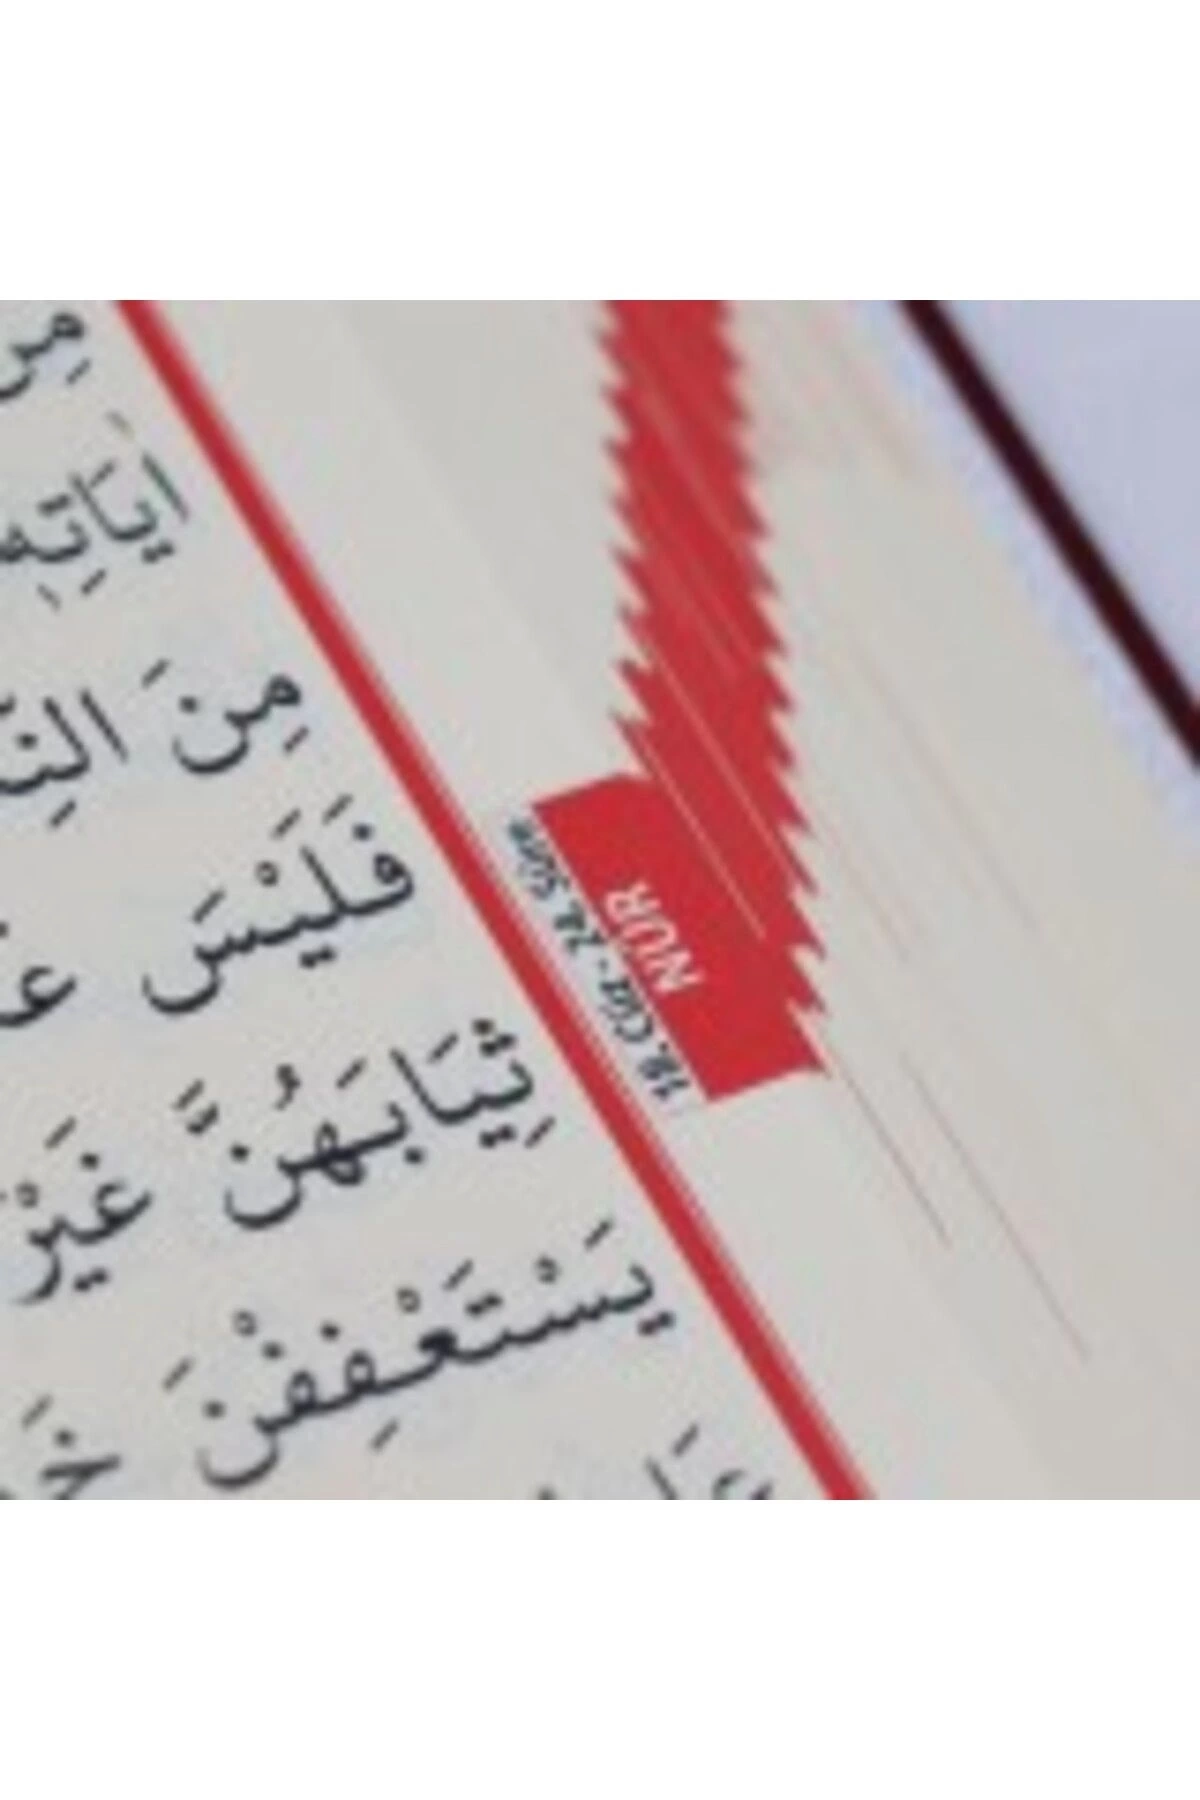 مِنَ
اٰيَاتِهٖ
مِنَ
فَلَيْسَ
ثِيَابَهُنَّ غَيْرَ
يَسْتَعْفِفْنَ
18. Cüz - 24. Sûre
NÛR